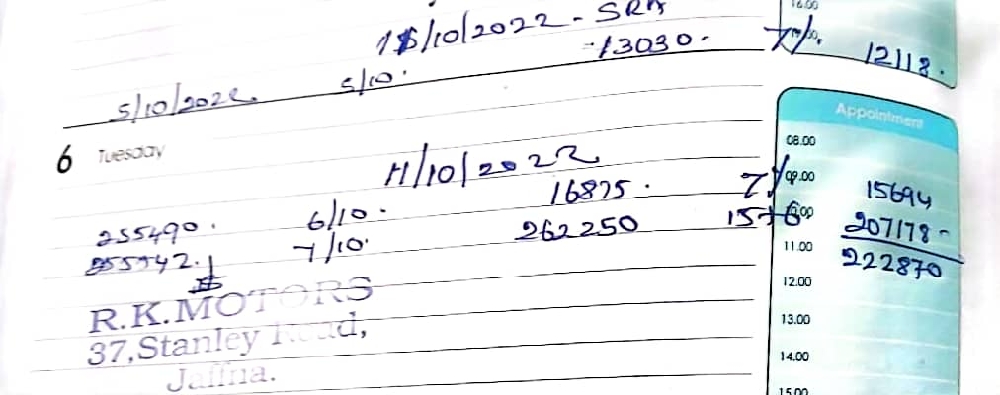 16.00
15/10/2022 - SRA
13030. 7%. 12118.
5/10/2022 5/10.
Appointment
6 Tuesday
08.00
11/10/2022
09.00
16875. 7% 15694
255490. 6/10.
262250 207178-
7/10.
11.00
222870
12.00
R.K.MOTORS
37,Stanley Road,
13.00
Jaffna.
14.00
15.00